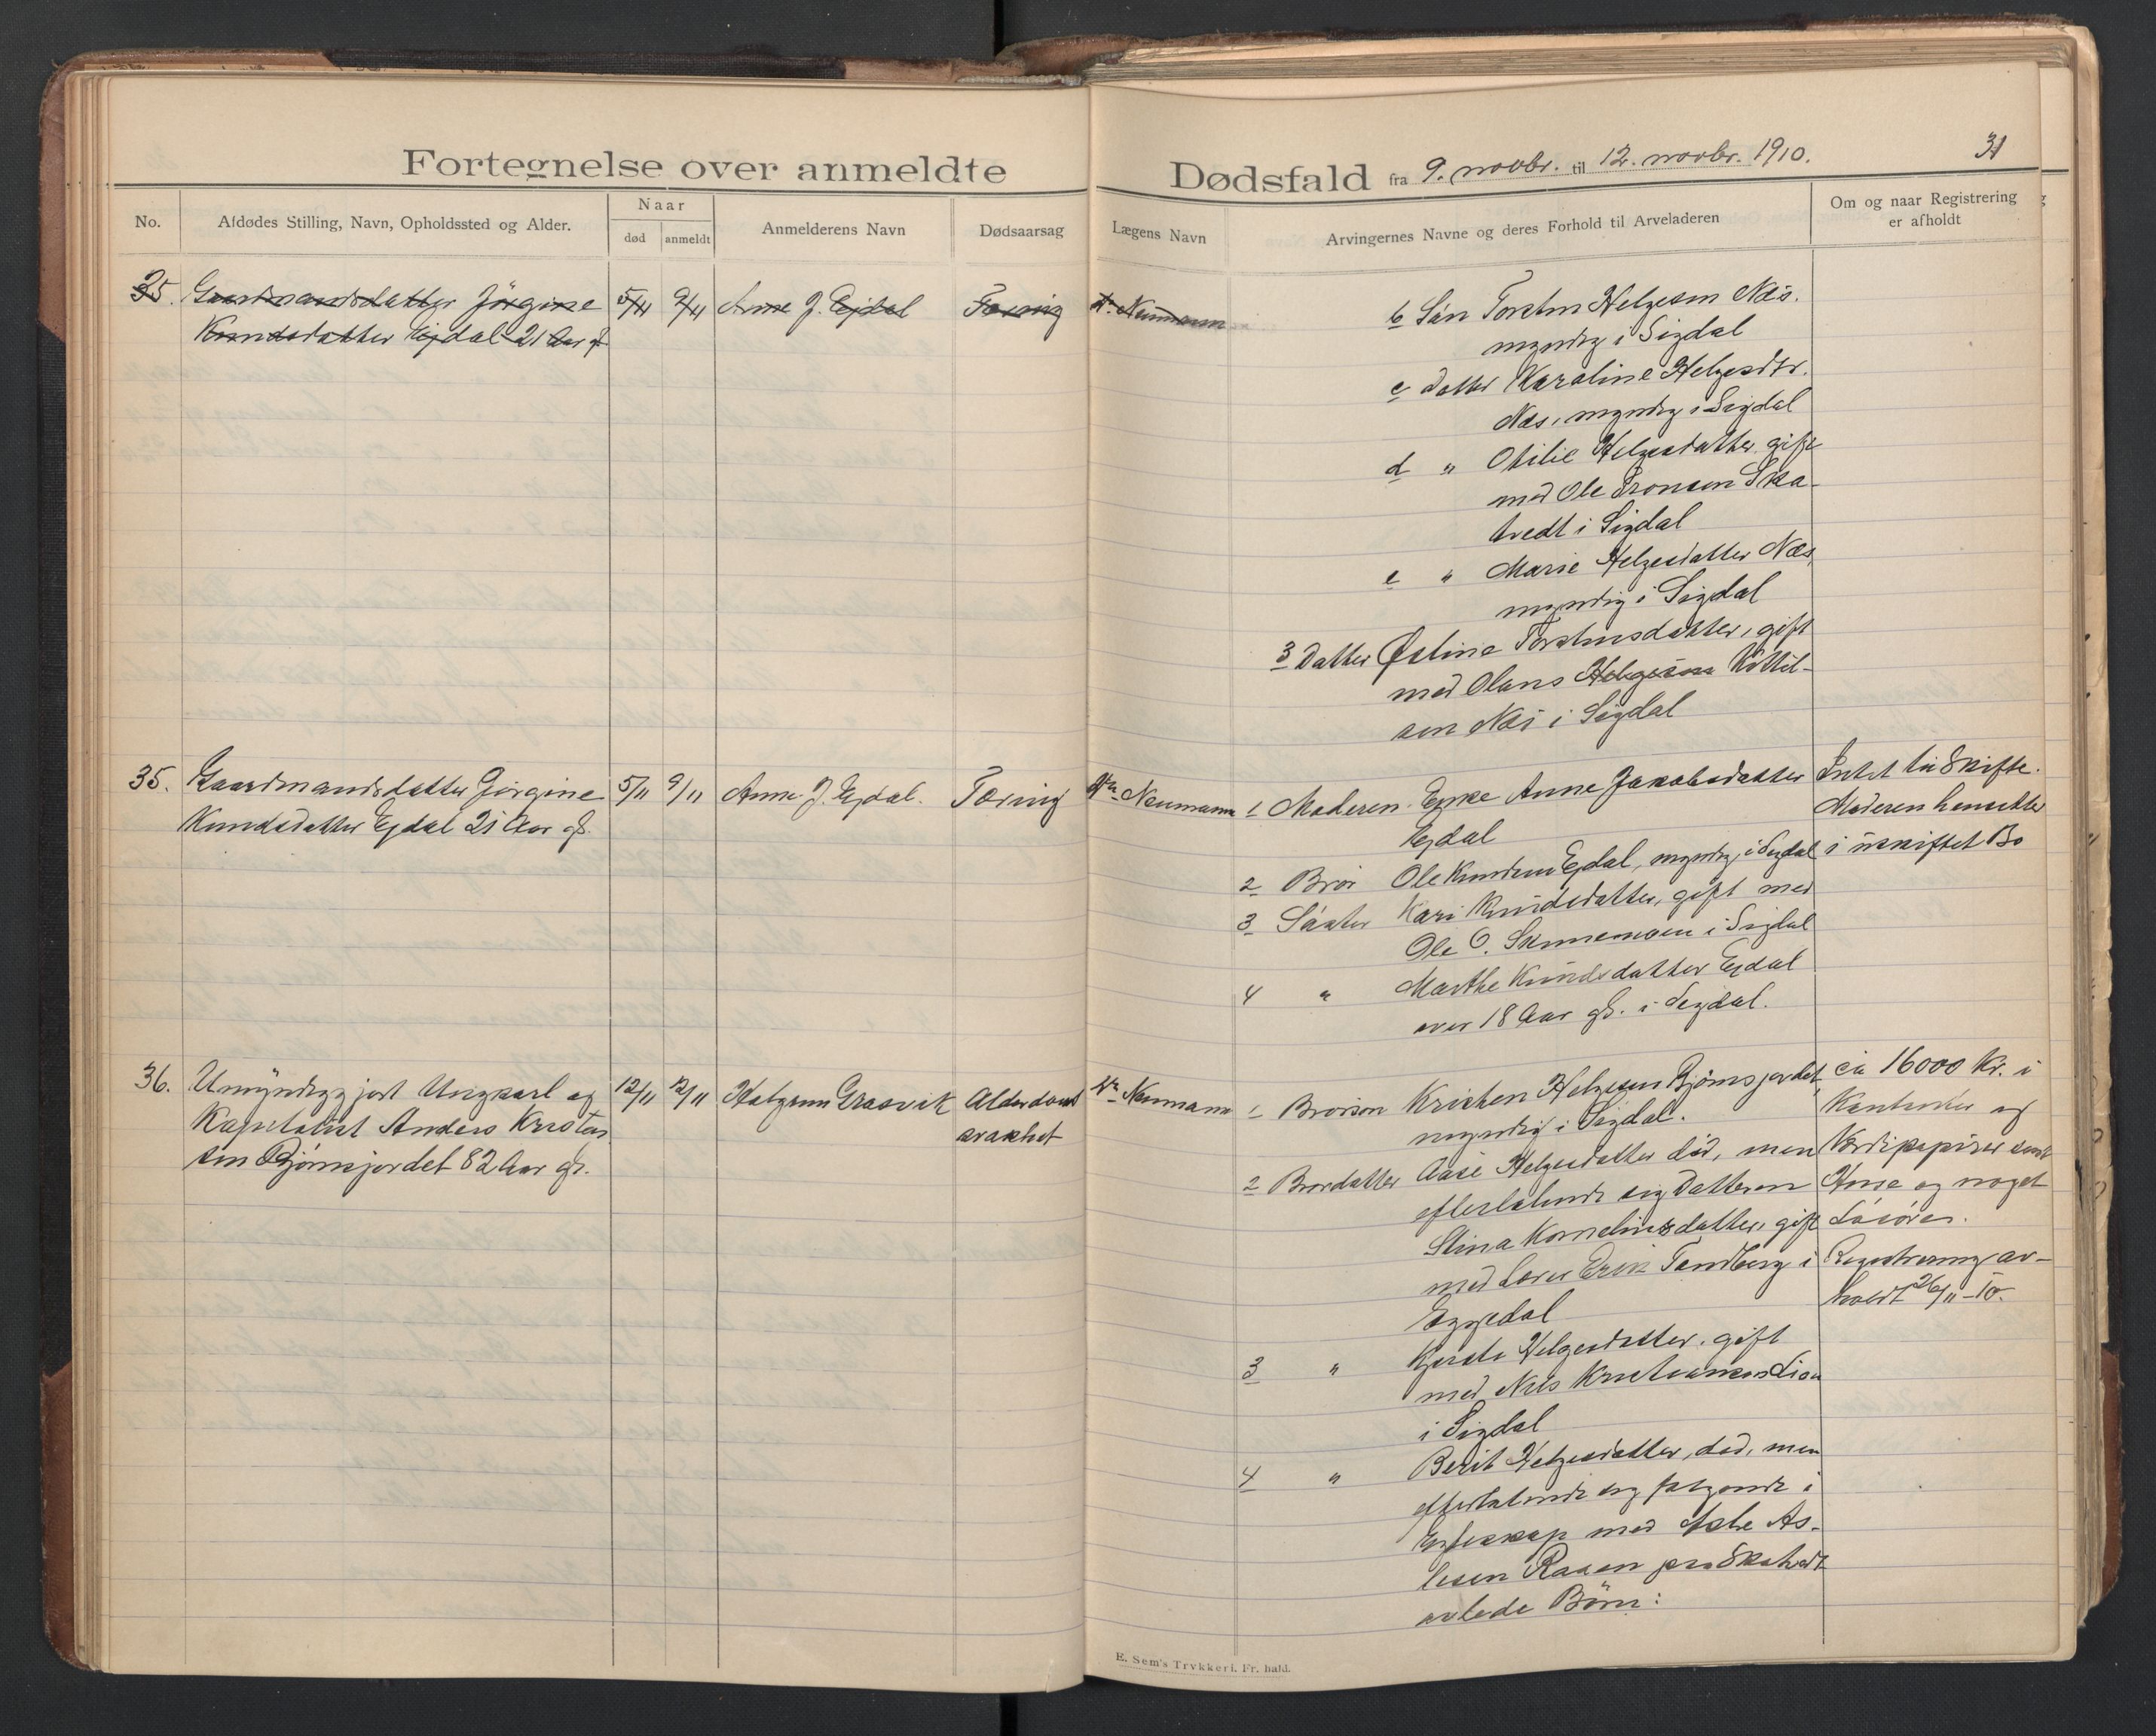 Fortegnelse over anmeldte
Dødsfald fra 9. novbr. til 12. novbr. 1910.
31
No.
Afdødes Stilling, Navn, Opholdssted og Alder.
Naar
død
anmeldt
Anmelderens Navn
Dødsaarsag
Lægens Navn
Arvingernes Navne og deres Forhold til Arveladeren
Om og naar Registrering
er afholdt
35. Gaardmandsdatter Jörgine 5/11 9/11 Anne J. Ejdal Tæring Dr. Neumann
Knudsdatter Ejdal 21 Aar gl.
b Sön Torsten Helgesen Næs.
myndig i Sigdal
c Datter Karoline Helgesdtr.
Næs, myndig i Sigdal
d " Otilie Helgesdatter, gift
med Ole Tronsen Ska-
tvedt i Sigdal
e " Marie Helgesdatter Næs,
myndig i Sigdal
3 Datter Østine Torstensdatter, gift
med Olans Helgesen Kittil-
sen Næs i Sigdal
35. Gaardmandsdatter Jörgine 5/11 9/11 Anne J. Ejdal. Tæring Dr. Neumann
Knudsdatter Ejdal 21 Aar gl.
1 Moderen Enke Anne Jakobsdatter
Ejdal
2 Bror Ole Knudsen Ejdal, myndig, i Sigdal
3 Söster Kari Knudsdatter, gift med
Ole O. Skinnemoen i Sigdal
4 " Marthe Knudsdatter Ejdal
over 18 Aar gl. i Sigdal.
Intet til Skifte.
Moderen hensitter
i uskiftet Bo
36. Umyndiggjort Ungkarl og 12/11 12/11 Halgrim Grasvik Alderdoms Dr. Neumann
Kapitalist Anders Kristen
svakhet
sen Bjömsjordet 82 Aar gl.
1 Brorsön Kristen Helgesen Bjömsjordet,
myndig i Sigdal.
2 Brordatter Aase Helgesdatter död, men
efterlatende sig Datteren
Stina Kornelinsdatter, gift
med Lærer Erik Tandberg i
Eggedal
3 " Kjersti Helgesdatter, gift
med Nils Kristiansen Lia
i Sigdal
4 " Berit Helgesdatter, död, men
efterlatende sig fölgende i
Egteskap med Asle As-
lesen Raaen paa Skatvedt
avlede Börn:
ca 16000 Kr. i
Kontanter og
Værdipapirer samt
Huse og noget
Lösöre.
Registrering av-
holdt 26/11-10.
E. Sem's Trykkeri. Fr.hald.